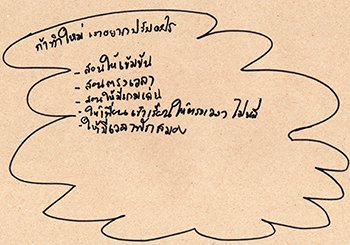 ถ้าทำใหม่ เราอยากปรับอะไร
- สอนให้เข้มข้น
- สอนตรงเวลา
- สอนให้มีเกมเล่น
- ให้เพื่อนเข้าเรียนให้ตรงเวลา ไม่หนี
- ให้มีเวลาพักสมอง